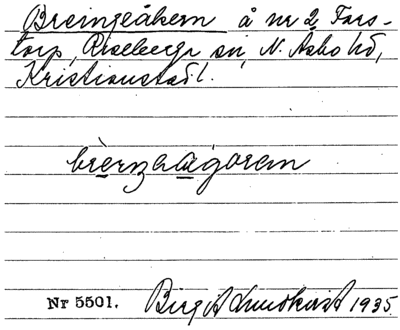 Breingeåkern å nr 2 Fors-
torp, Riseberga sn, N. Åsbo hd,
Kristianstad l.
Nr 5501. Birgit Lundkvist 1935